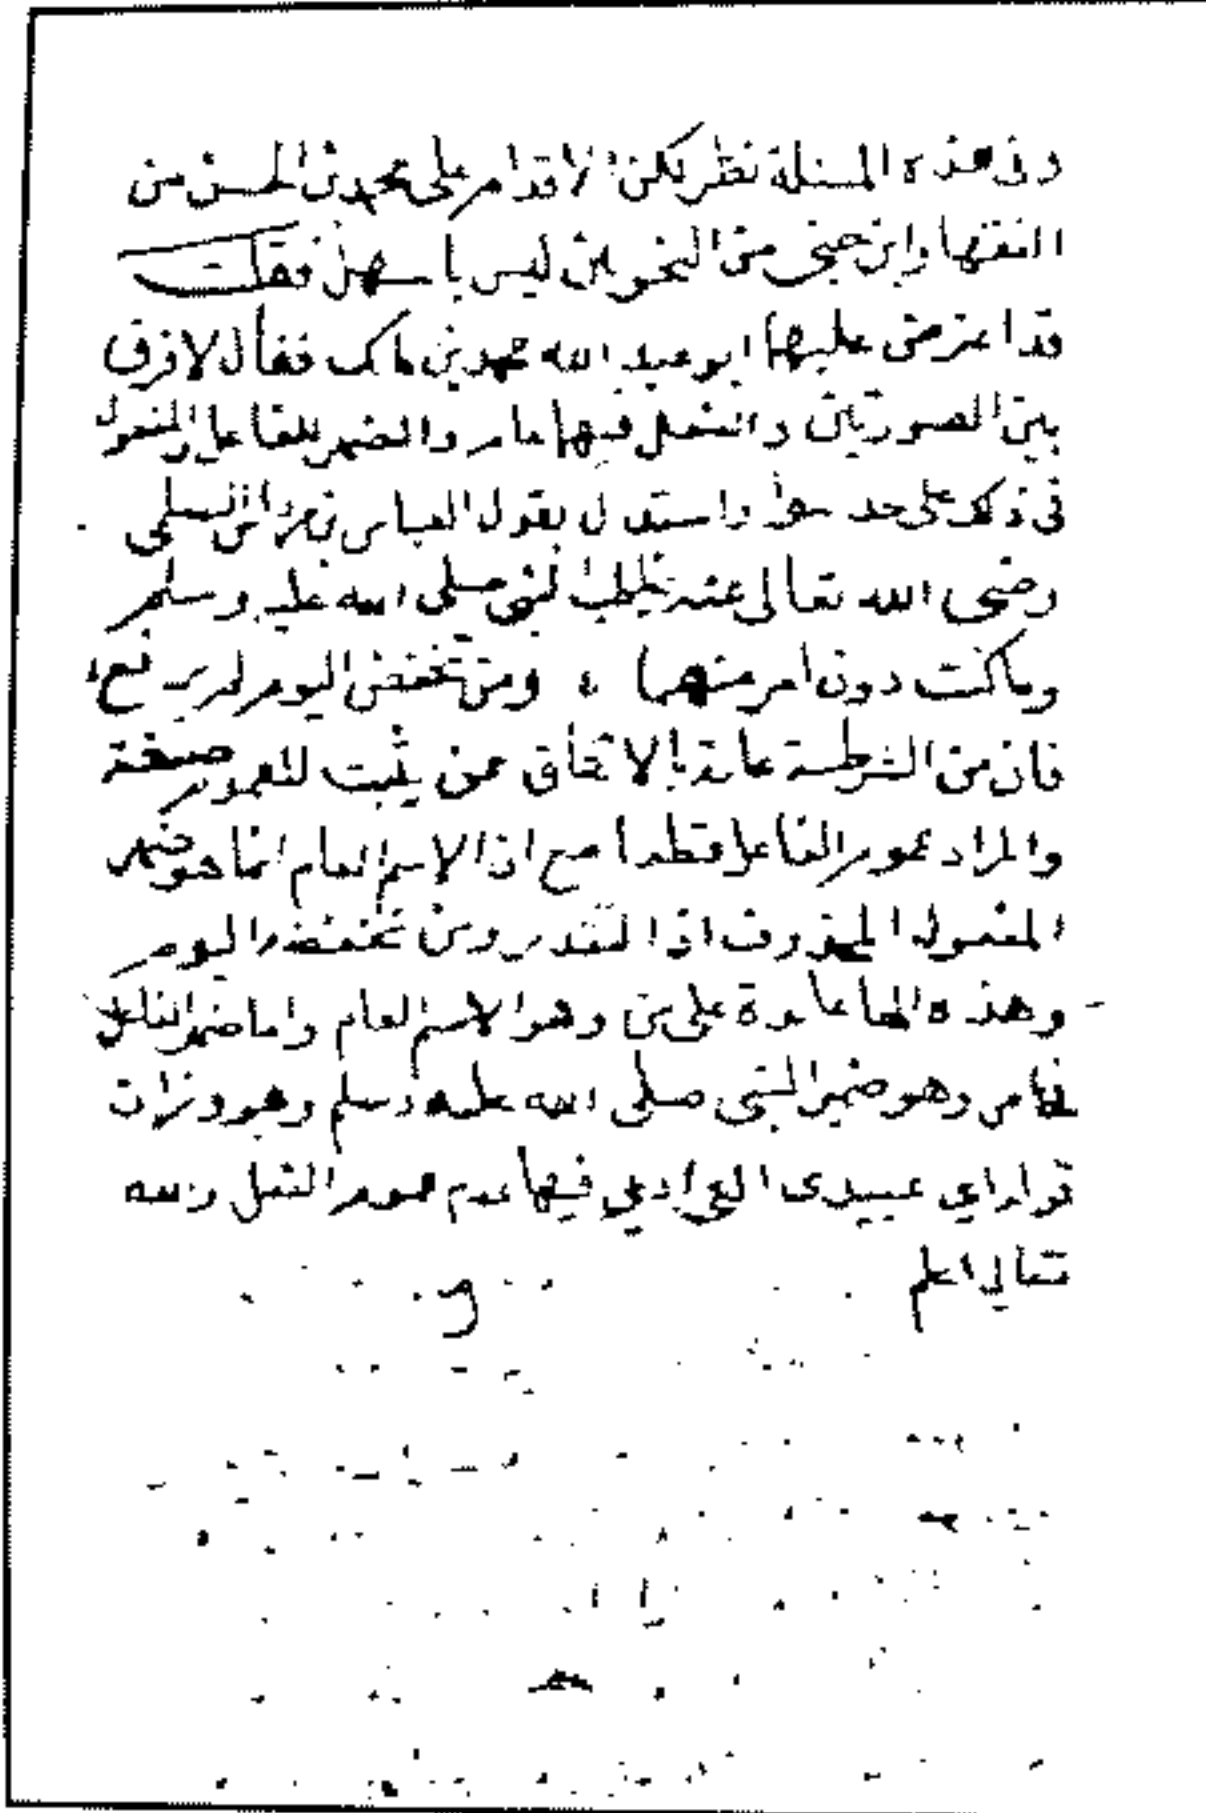 وفي هذه المسئلة نظر لكن الاقدام على محمد بن الحسن من
الفقها وابن جني من النحويين ليس بالسهل فقلت
قد اعترض عليهما ابو عبد الله محمد بن مالك فقال لا فرق
بين الصورتين والفعل فيهما عام والضمير للفاعل والمفعول
في ذلك على حد سوا واستدل بقول العباس بن مرداس السلمي
رضي الله تعالى عنه يخاطب النبي صلى الله عليه وسلم
وما كنت دون امر منهما ، ومن تخفض اليوم لم يرفع ،
فان من الشرطية عامة بالاتفاق ممن يثبت للعموم صيغة
والمراد عموم الفاعل قطعا مع ان الاسم العام انما هو ضمير
المفعول المحذوف اذ التقدير ومن تخفضه اليوم
وهذه الها عايدة على من وهو الاسم العام واما ضمير الفاعل
فخاص وهو ضمير النبي صلى الله عليه وسلم وهو وزان
عبيدي فيها عدم عموم الفعل والله
تعالى اعلم